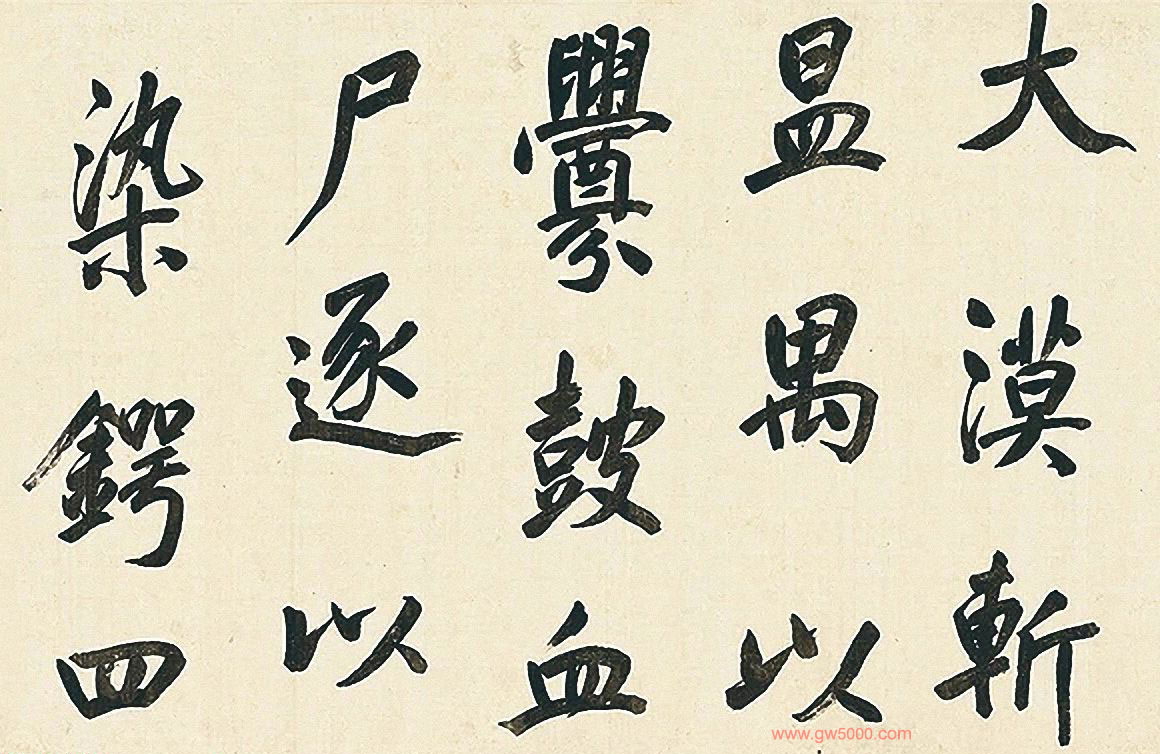 大漠斬
昷禺以
釁鼓血
尸逐以
染鍔四
www.gw5000.com